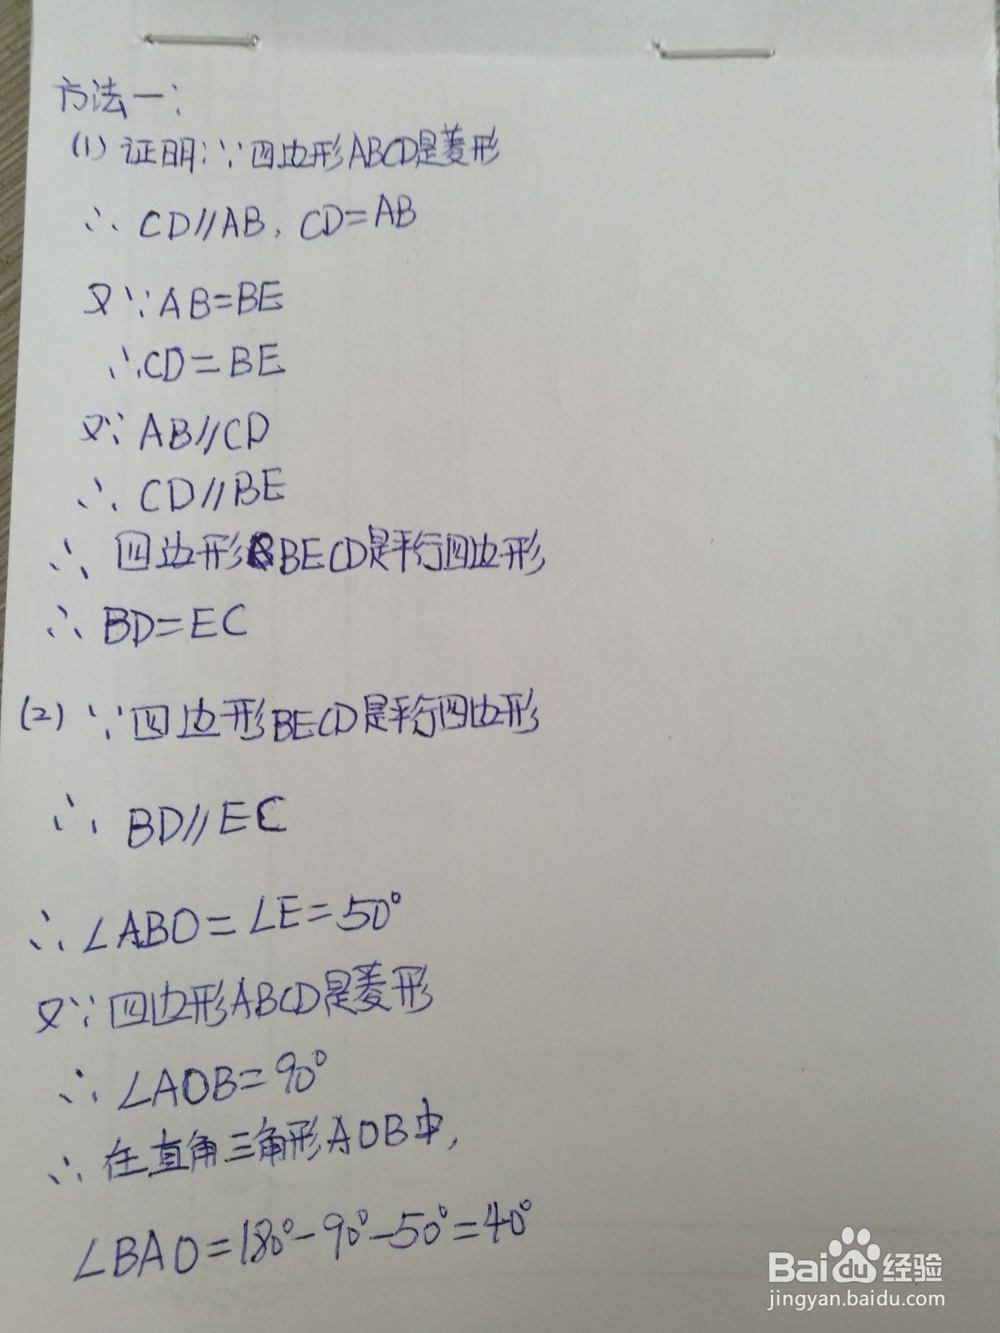 方法一:
(1) 证明:∵四边形ABCD是菱形
∴ CD//AB, CD=AB
又∵AB=BE
∴CD=BE
又∵ AB//CD
∴ CD//BE
∴ 四边形BECD是平行四边形
∴ BD=EC
(2) ∵四边形BECD是平行四边形
∴ BD//EC
∴∠ABO=∠E=50°
又∵四边形ABCD是菱形
∴ ∠AOB=90°
∴ 在直角三角形AOB中,
∠BAO=180°-90°-50°=40°
Baidu经验
jingyan.baidu.com